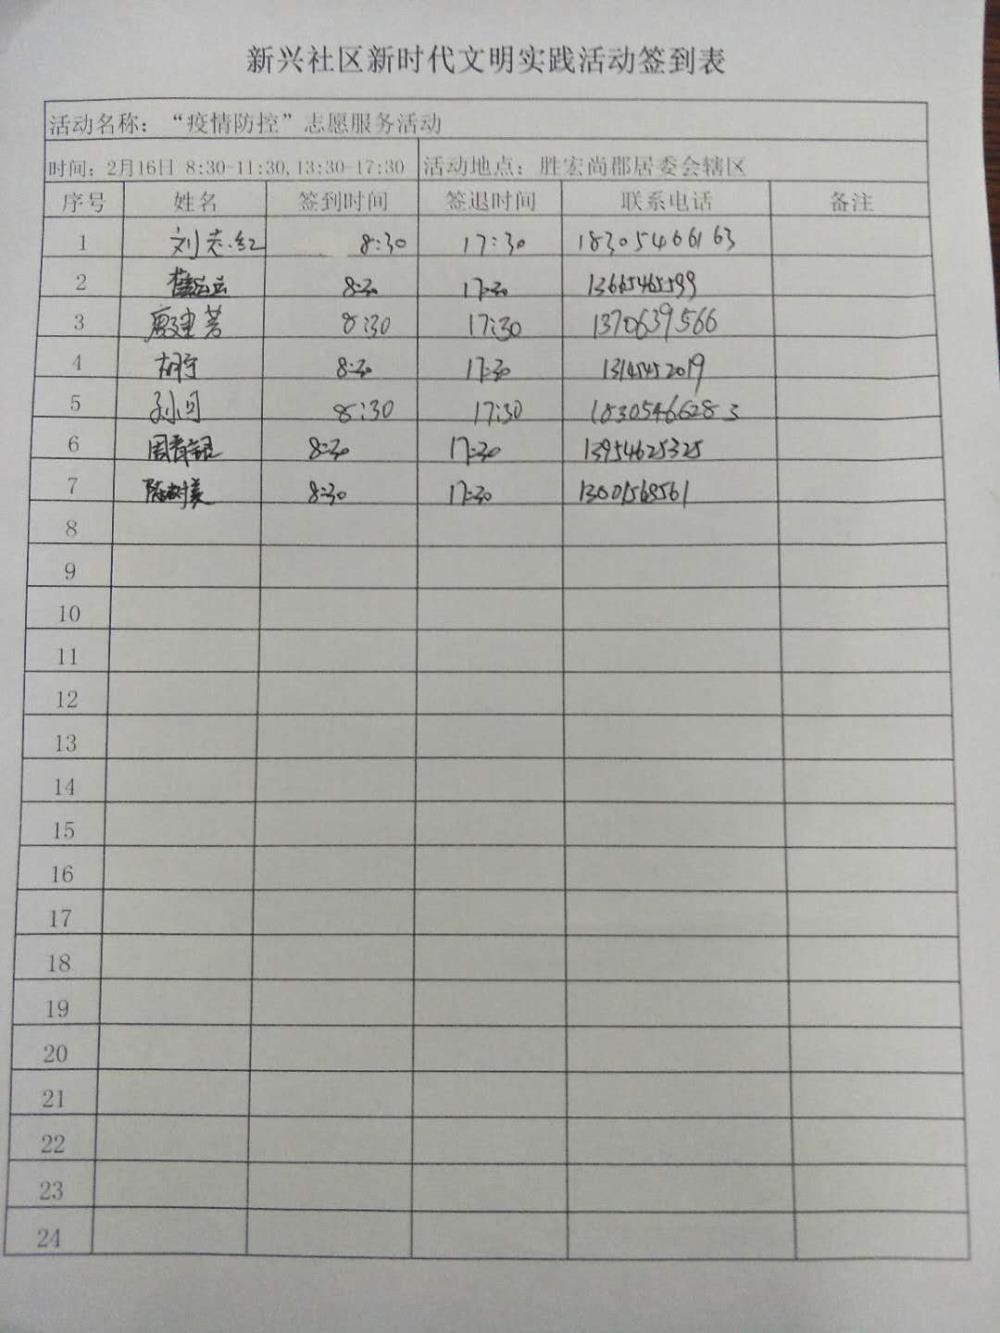 新兴社区新时代文明实践活动签到表
活动名称：“疫情防控”志愿服务活动
时间：2月16日 8:30-11:30,13:30-17:30 活动地点：胜宏尚郡居委会辖区
序号 姓名 签到时间 签退时间 联系电话 备注
1 刘志红 8:30 17:30 18305466163
2 8:30 17:30 13665465599
3 廖建芳 8:30 17:30 1370639566
4 胡宁 8:30 17:30
5 孙可 8:30 17:30 18305466283
6 8:30 17:30 13954625325
7 陈树美 8:30 17:30 13001568561
8
9
10
11
12
13
14
15
16
17
18
19
20
21
22
23
24